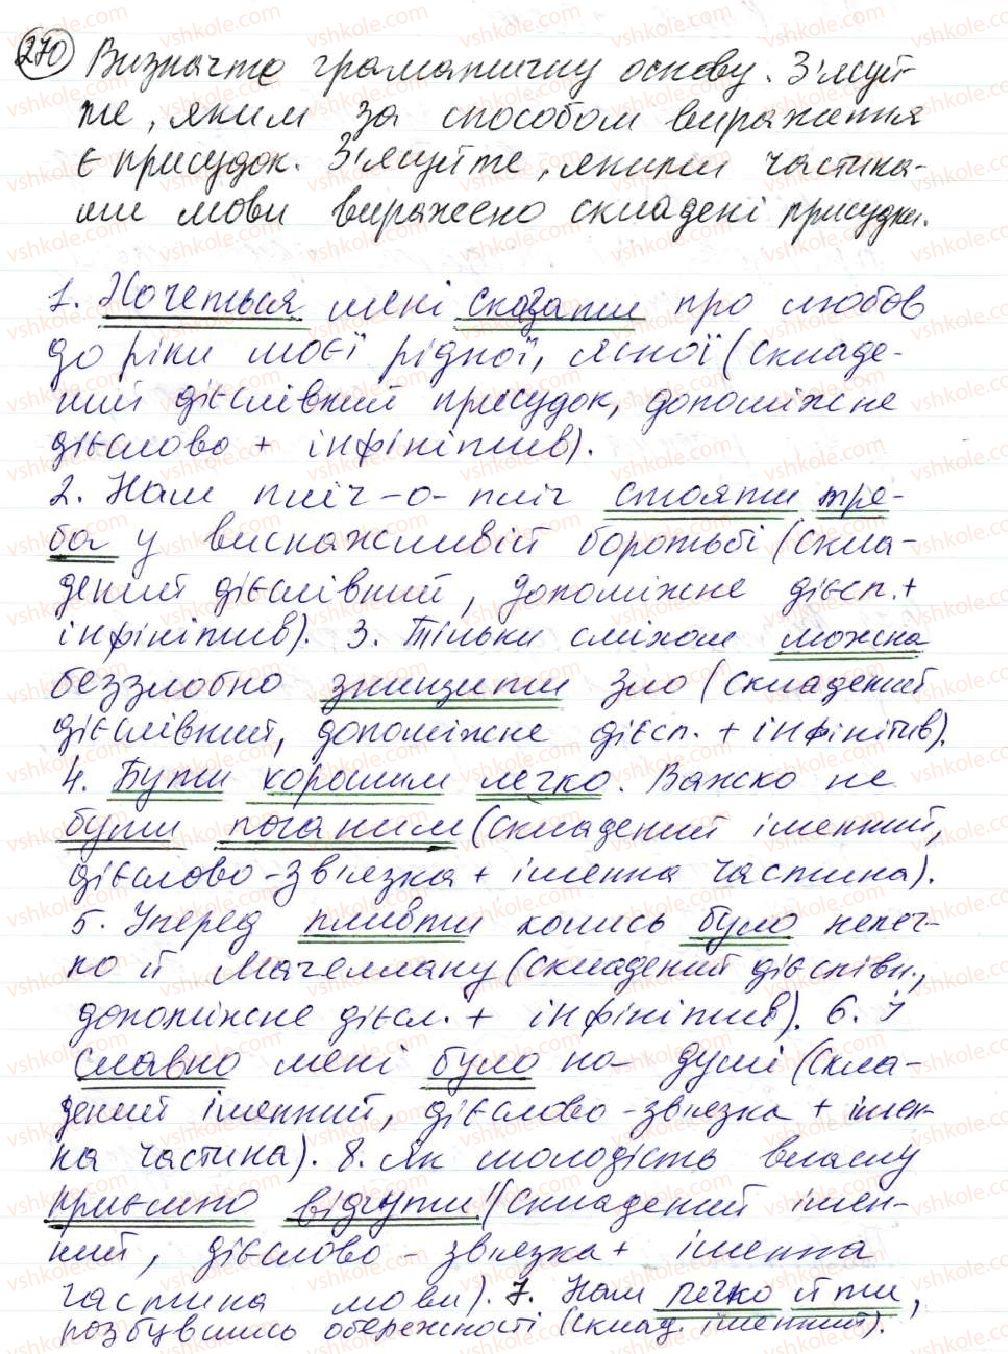 270 Визначте граматичну основу. З'ясуй-
те, яким за способом вираження
є присудок. З'ясуйте, якими частина-
ми мови виражено складені присудки.
1. Хочеться мені сказати про любов
до ріки моєї рідної, ясної (складе-
ний дієслівний присудок, допоміжне
дієслово + інфінітив).
2. Нам пліч-о-пліч стояти тре-
ба у виснажливій боротьбі (скла-
дений дієслівний, допоміжне дієсл. +
інфінітив). 3. Тільки сміхом можна
беззлобно знищити зло (складений
дієслівний, допоміжне дієсл. + інфінітив).
4. Бути хорошим легко. Важко не
бути поганим (складений іменний,
дієслово-зв'язка + іменна частина).
5. Уперед пливти колись було нелег-
ко й Магеллану (складений дієслівн.,
допоміжне дієсл. + інфінітив). 6. І
славно мені було на душі (скла-
дений іменний, дієслово-зв'язка + імен-
на частина). 8. Як молодість власну
приємно відчути! (складений імен-
ний, дієслово-зв'язка + іменна
частина мови). 7. Нам легко йти,
розбувшись обережності (склад. іменний).